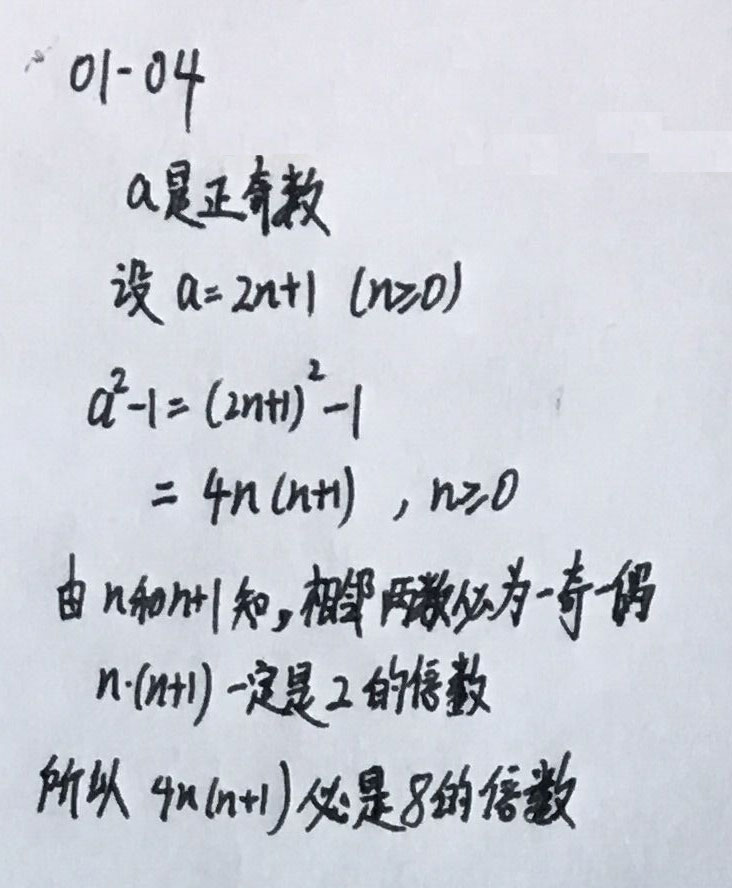 01-04
a是正奇数
设 a=2n+1 (n≥0)
a²-1=(2n+1)²-1
=4n(n+1) , n≥0
由n和n+1知,相邻两数必为一奇一偶
n·(n+1)一定是2的倍数
所以 4n(n+1)必是8的倍数